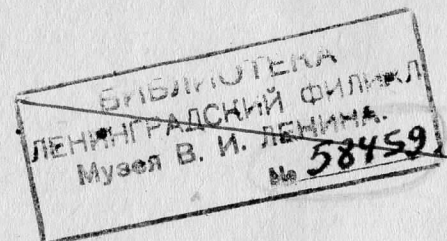 БИБЛИОТЕКА
ЛЕНИНГРАДСКИЙ ФИЛИАЛ
Музея В. И. ЛЕНИНА.
№ 58459